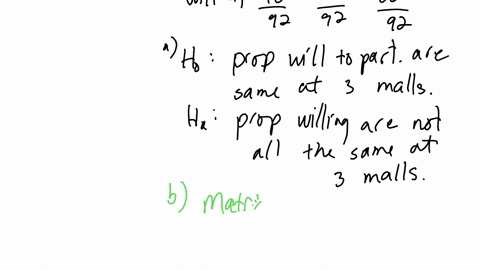 92 92 92
a) H₀: prop will to part. are
same at 3 malls.
Hₐ: prop willing are not
all the same at
3 malls.
b) Matri